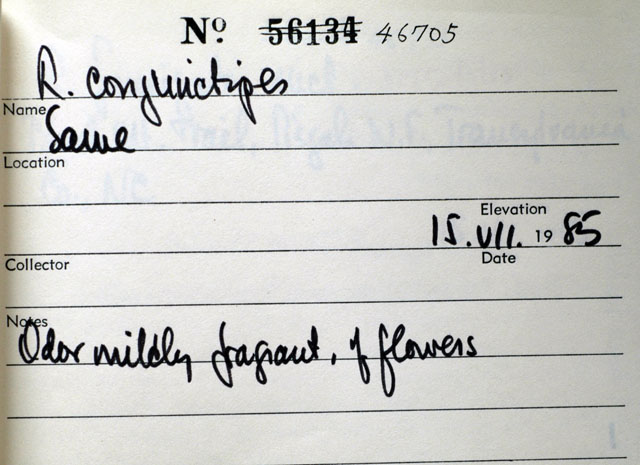 Nº 56134 46705
R. conjunctipes
Name
Same
Location
Elevation
15.VII. 19 85
Collector
Date
Notes
Odor mildly fragrant, of flowers